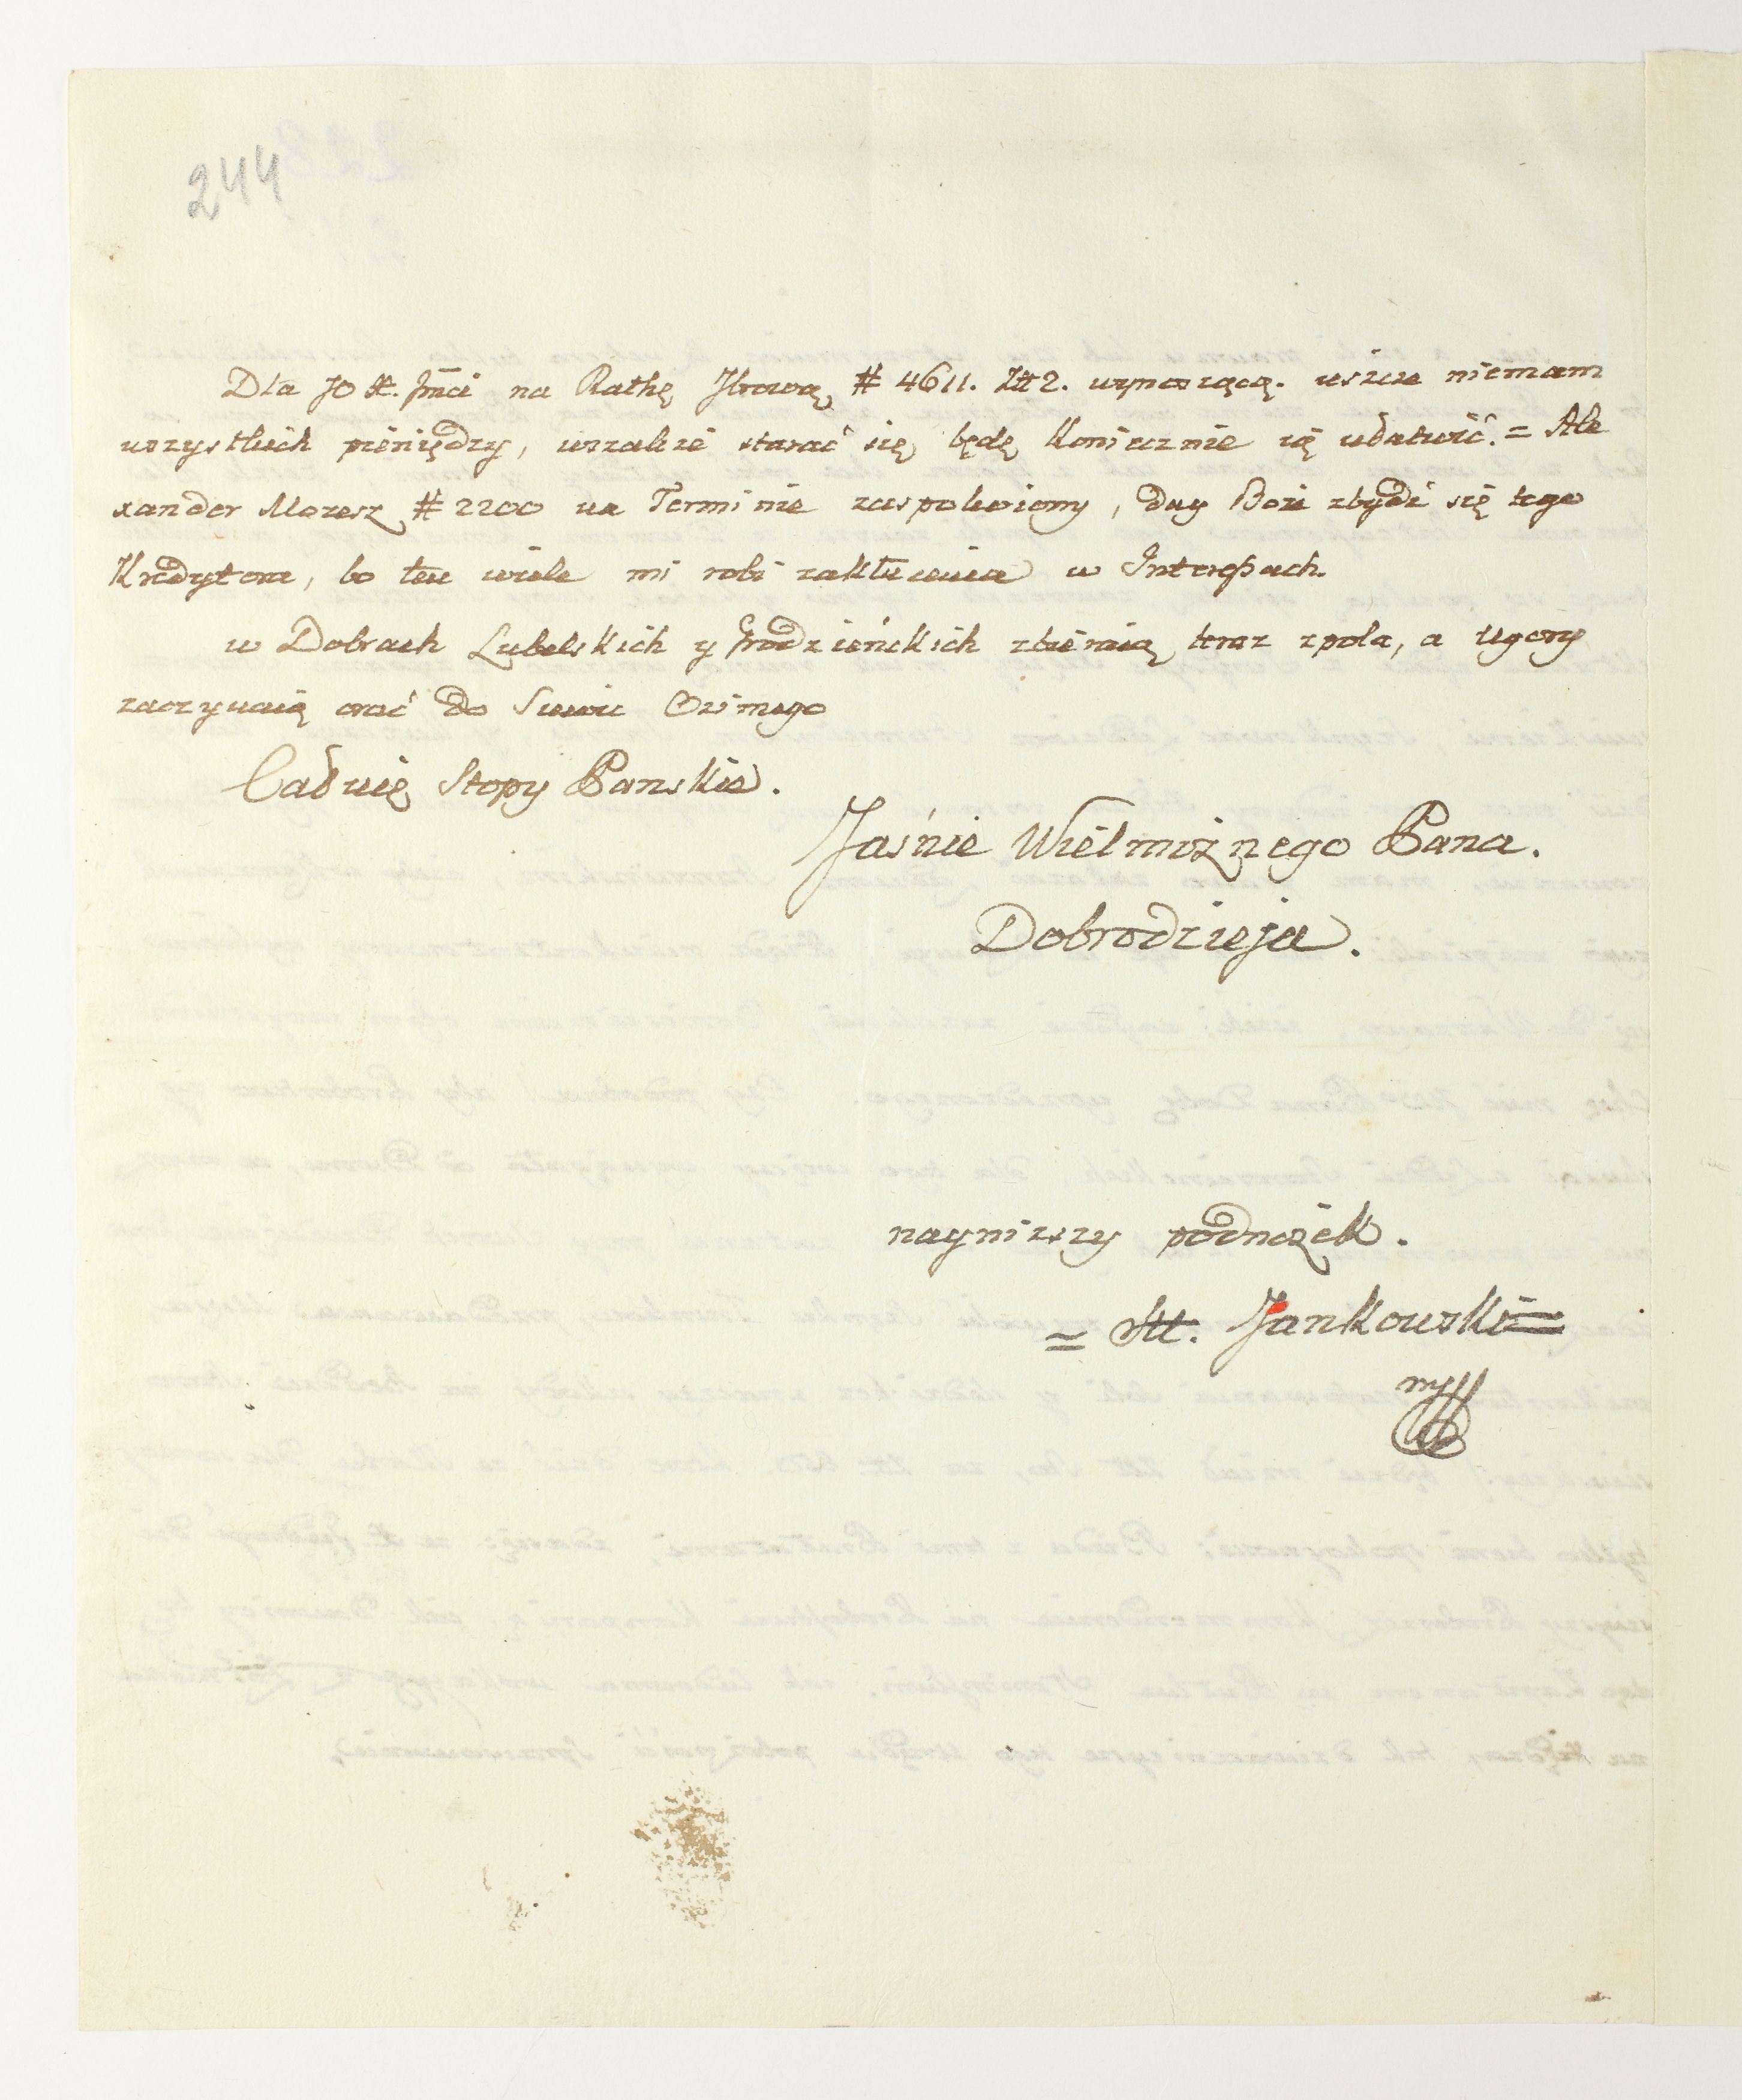 244
Dla JO X. Jmci na Rathę Jbrową # 4611. Zł 2. wynoszącą. ieszcze niemam
wszystkich pieniędzy, wszakże starać się będę koniecznie ią ułatwić. = Ale
xander Moresz # 2200 na Terminie zaspokoiony, day Boże zbydź się tego
Kredytora, bo ten wiele mi robi zakłucenia w Interessach.
w Dobrach Lubelskich y Grodzieńckich zbieraią teraz z pola, a Ugory
zaczynaią orać do Siewu Ozimego
Całuię Stopy Panskie.
Jaśnie Wielmożnego Pana.
Dobrodzieja.
nayniższy podnożek.
= Jankowski =